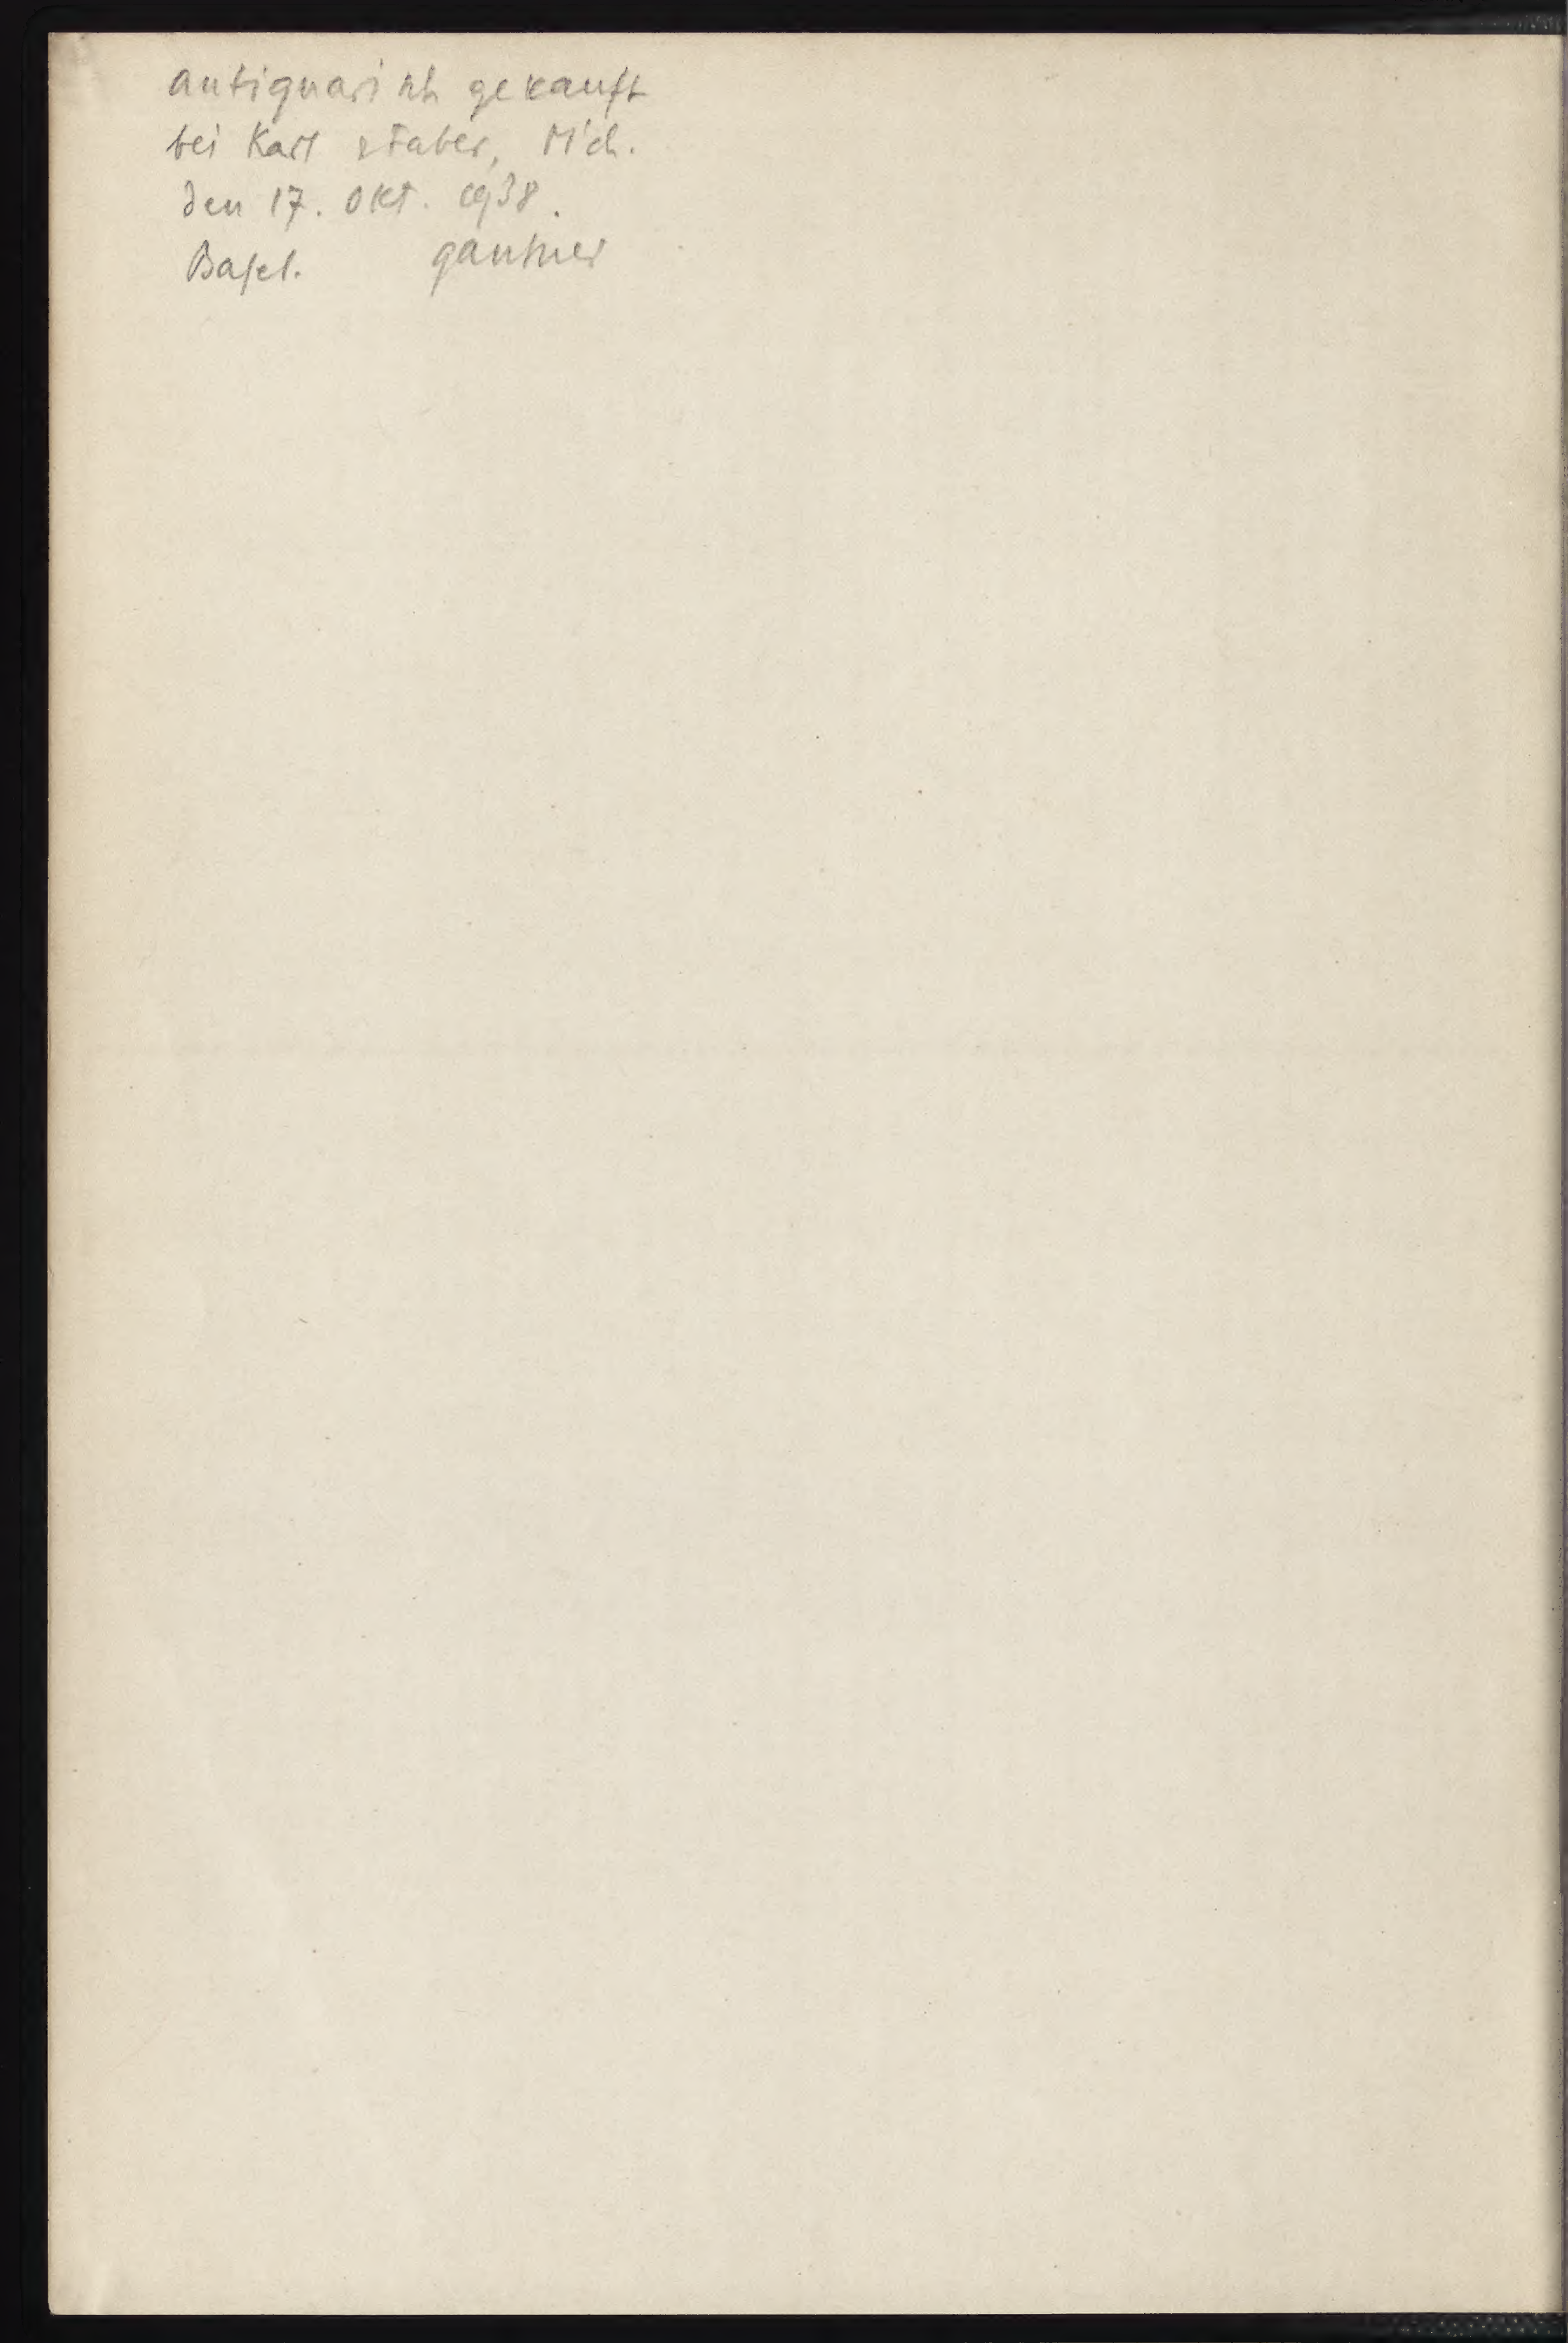 antiquarisch gekauft
bei Karl & Faber, M'ch.
den 17. Okt. 1938.
Basel. Gantner